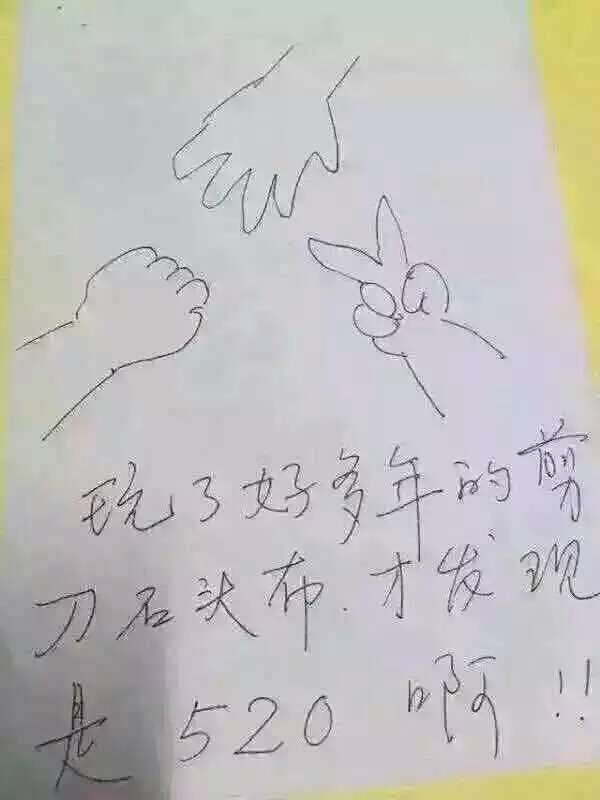 玩了好多年的剪
刀石头布.才发现
是520啊!!